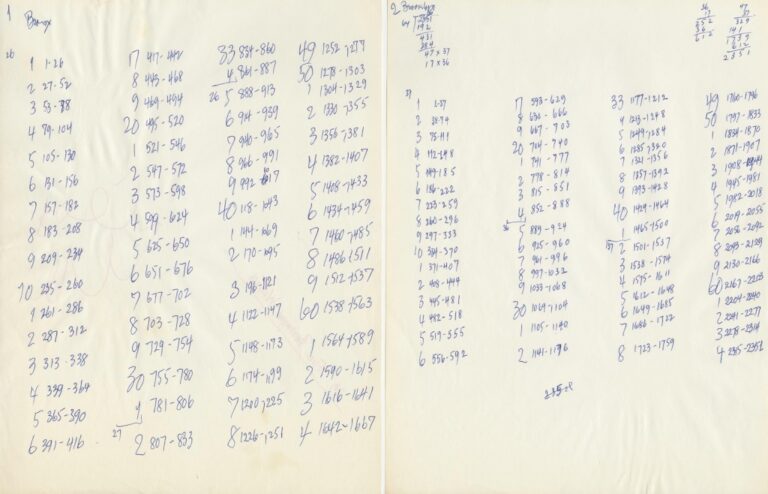 1 Bronx
26
1 1-26
2 27-52
3 53-78
4 79-104
5 105-130
6 131-156
7 157-182
8 183-208
9 209-234
10 235-260
1 261-286
2 287-312
3 313-338
4 339-364
5 365-390
6 391-416
17 417-442
8 443-468
9 469-494
20 495-520
1 521-546
2 547-572
3 573-598
4 599-624
5 625-650
6 651-676
7 677-702
8 703-728
9 729-754
30 755-780
1 781-806
27
2 807-833
33 834-860
4 861-887
26 5 888-913
6 914-939
7 940-965
8 966-991
9 992-1017
40 1018-1043
1 1044-1069
2 1070-1095
3 1096-1121
4 1122-1147
5 1148-1173
6 1174-1199
7 1200-1225
8 1226-1251
49 1252-1277
50 1278-1303
1 1304-1329
2 1330-1355
3 1356-1381
4 1382-1407
5 1408-1433
6 1434-1459
7 1460-1485
8 1486-1511
9 1512-1537
60 1538-1563
1 1564-1589
2 1590-1615
3 1616-1641
4 1642-1667
2
64 2351
192
431
384
47 x 37
17 x 36
36
17
252
36
612
47
37
329
141
1739
612
2351
37
1 1-37
2 38-74
3 75-111
4 112-148
5 149-185
6 186-222
7 223-259
8 260-296
9 297-333
10 334-370
1 371-407
2 408-444
3 445-481
4 482-518
5 519-555
6 556-592
17 593-629
8 630-666
9 667-703
20 704-740
1 741-777
2 778-814
3 815-851
4 852-888
36
5 889-924
6 925-960
7 961-996
8 997-1032
9 1033-1068
30 1069-1104
1 1105-1140
2 1141-1176
33 1177-1212
4 1213-1248
5 1249-1284
6 1285-1320
7 1321-1356
8 1357-1392
9 1393-1428
40 1429-1464
1 1465-1500
37 2 1501-1537
3 1538-1574
4 1575-1611
5 1612-1648
6 1649-1685
7 1686-1722
8 1723-1759
49 1760-1796
50 1797-1833
1 1834-1870
2 1871-1907
3 1908-1944
4 1945-1981
5 1982-2018
6 2019-2055
7 2056-2092
8 2093-2129
9 2130-2166
60 2167-2203
1 2204-2240
2 2241-2277
3 2278-2314
4 2315-2351